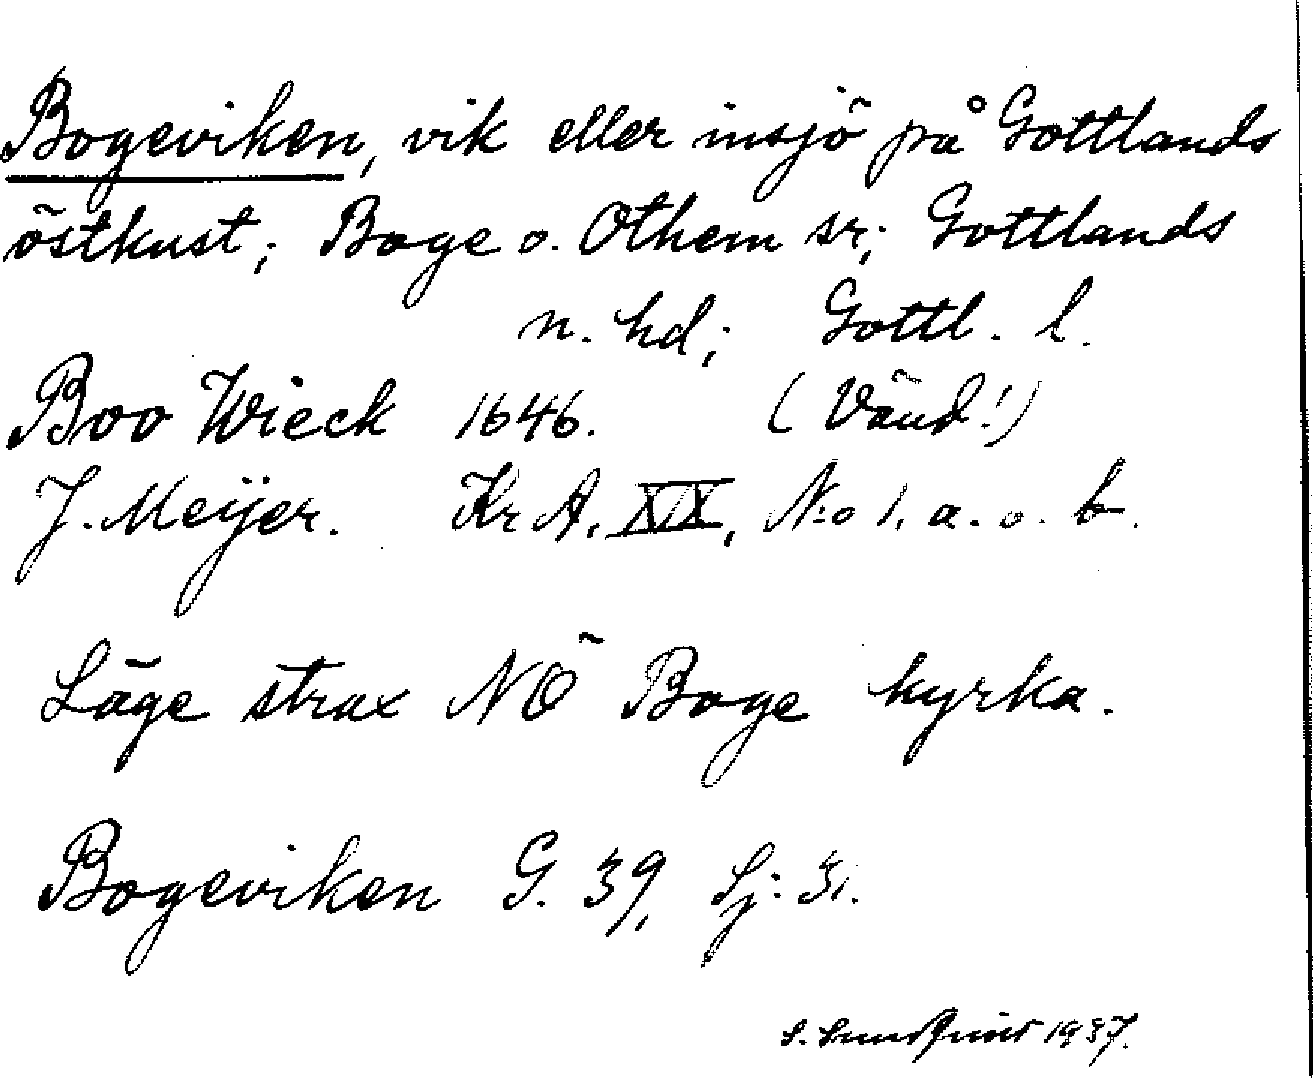 Bogeviken, vik eller insjö på Gottlands
östkust; Boge o. Othem sr; Gottlands
n. hd; Gottl. l.
Boo Wieck 1646. (Vänd!)
J. Meÿer. Kr A. XIX, N:o 1. a. o. b.
Läge strax NÖ Boge kyrka.
Bogeviken G. 39, Sj: 31.
S. 1937.